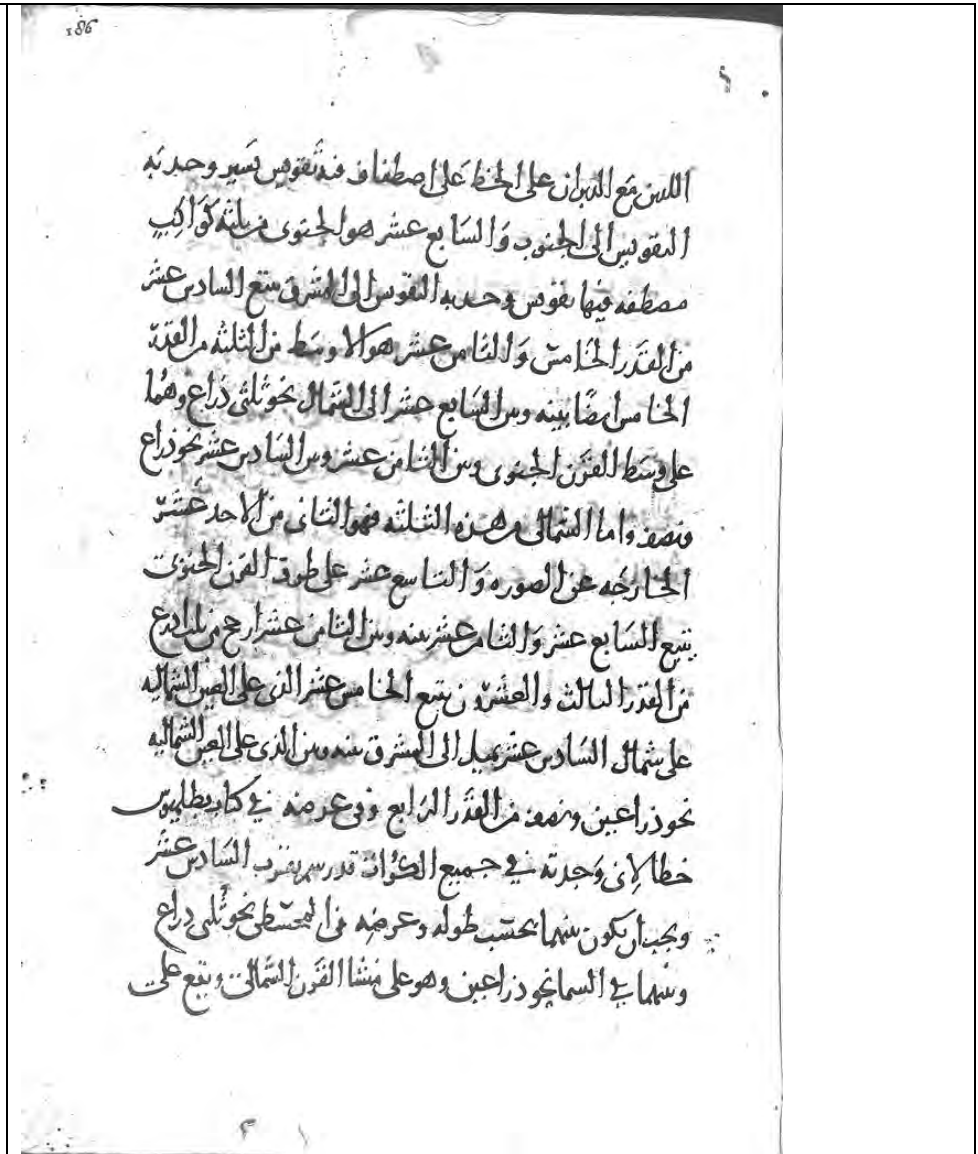 186
اللىىن مع الدبران على الخط على اصطفاف فيه تقويس يسير وحدبه
التقويس الى الجنوب وَالسَابع عشر هو الجنوبى من ثلثه كوَاكبٍ
مصطفه فيها تقوس وحدبه التقوس الى المشرق يتبع السادس عشر
من القدر الخامس وَالثامن عشر هو الاوسط من الثلثه من القدر
الخامس ايضًا بينه وبين السَابع عشر الى الشمال نحو ثلثى ذراع وهُما
على وسَط القرن الجنوبى وبين الثامن عشر وبين السَادس عشر نحو ذراع
ونصف واما الشمالى من هذه الثلثه فهو الثانى من الاحد عَشر
الخارجَه عن الصوره وَالتاسع عشر على طرف القرن الجنوبى
يتبع السَابع عشر وَالثامن عشر بينه وبين الثامن عشر ارجح من ثلث اذرع
من القدر الثالث والعشرون يتبع الخامس عشر الذى على العين الشماليه
على شمال السَادس عشر يميل الى المشرق بينه وبين الذى على العين الشماليه
نحو ذراعين ونصف من القدر الرَابع وفى عرضه فى كتاب بطلميوس
خطا لانى وَجدته فى جميع الكرات قد رسم بقرب السَادس عشر
ويجب ان يكون بينهما بحسَب طوله وعرضه فى المجسطى نحو ثُلثى ذراع
وبينهما فى السما نحو ذراعين وهو على منشا القرن الشمالى ويتبع على